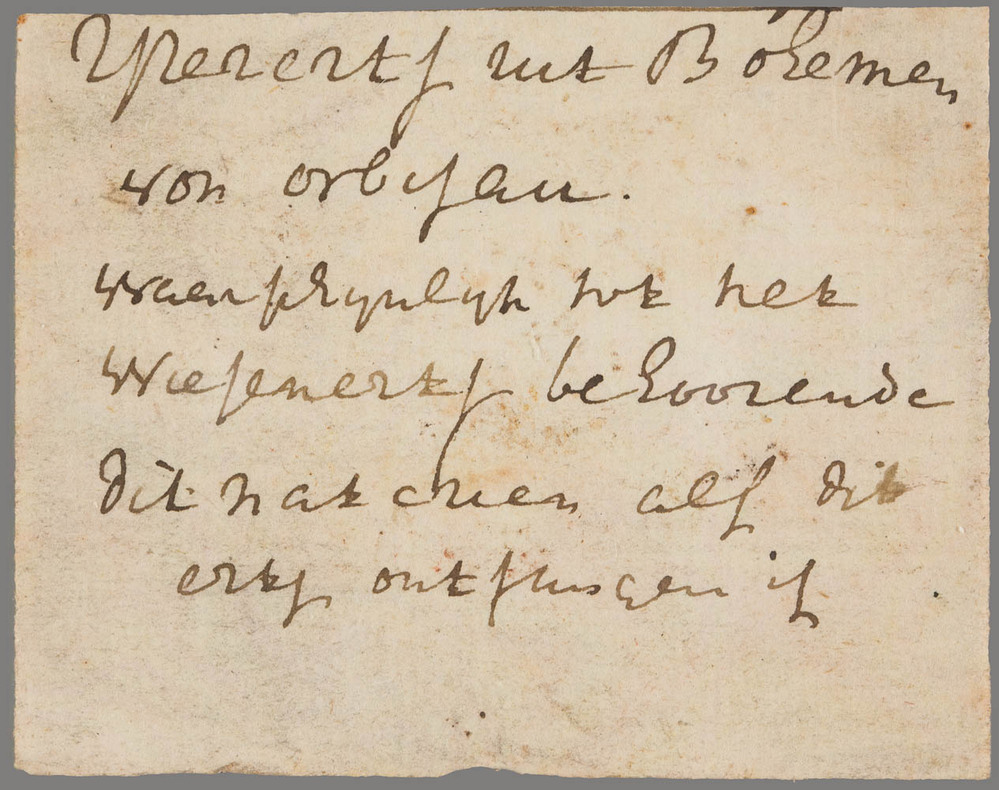 Ysererts uut Bohemen
von orbisau.
waerschynlyk tot het
Wiesenerts behoorende
dit hat even als dit
erts ontfangen is